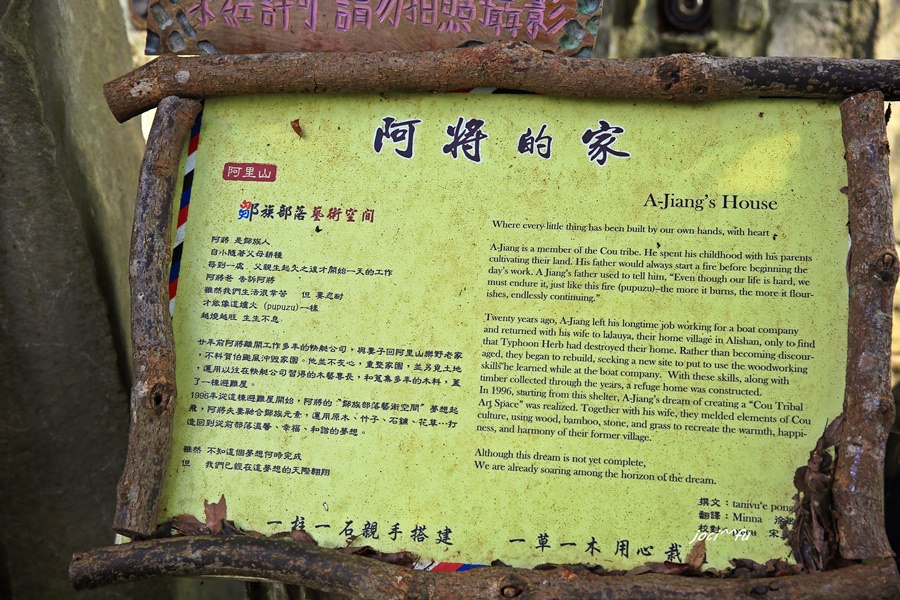 未經許可 請勿拍照攝影
阿將的家
阿里山
鄒族部落藝術空間
阿將 是鄒族人
自小隨著父母耕種
每到一處，父親生起灸之後才開始一天的工作
阿將爸 告訴阿將
雖然我們生活很辛苦 但 要忍耐
才能像這爐火 (pupuzu)一樣
越燒越旺 生生不息
廿年前阿將離開工作多年的快艇公司，與妻子回阿里山樂野老家
，不料賀伯颱風沖毀家園。他並不灰心，重整家園，並另覓土地
，運用以往在快艇公司習得的木藝專長，和蒐集多年的木料，蓋
了一棟避難屋。
1996年從這棟避難屋開始，阿將的“鄒族部落藝術空間”夢想起
飛，阿將夫妻融合鄒族元素，運用原木、竹子、石鋪、花草…打
造回到從前部落溫馨、幸福、和諧的夢想。
雖然 不知這個夢想何時完成
但 我們已經在這夢想的天際翱翔
A-Jiang's House
Where every little thing has been built by our own hands, with heart
A-Jiang is a member of the Cou tribe. He spent his childhood with his parents
cultivating their land. His father would always start a fire before beginning the
day's work. A Jiang's father used to tell him, "Even though our life is hard, we
must endure it, just like this fire (pupuzu)–the more it burns, the more it flour-
ishes, endlessly continuing."
Twenty years ago, A-Jiang left his longtime job working for a boat company
and returned with his wife to lalauya, their home village in Alishan, only to find
that Typhoon Herb had destroyed their home. Rather than becoming discour-
aged, they began to rebuild, seeking a new site to put to use the woodworking
skills he learned while at the boat company. With these skills, along with
timber collected through the years, a refuge home was constructed.
In 1996, starting from this shelter, A-Jiang's dream of creating a "Cou Tribal
Art Space" was realized. Together with his wife, they melded elements of Cou
culture, using wood, bamboo, stone, and grass to recreate the warmth, happi-
ness, and harmony of their former village.
Although this dream is not yet complete,
We are already soaring among the horizon of the dream.
撰文：tanivu'e pong
翻譯：Minna 涂
校對 宋
一柱一石親手搭建
一草一木用心栽